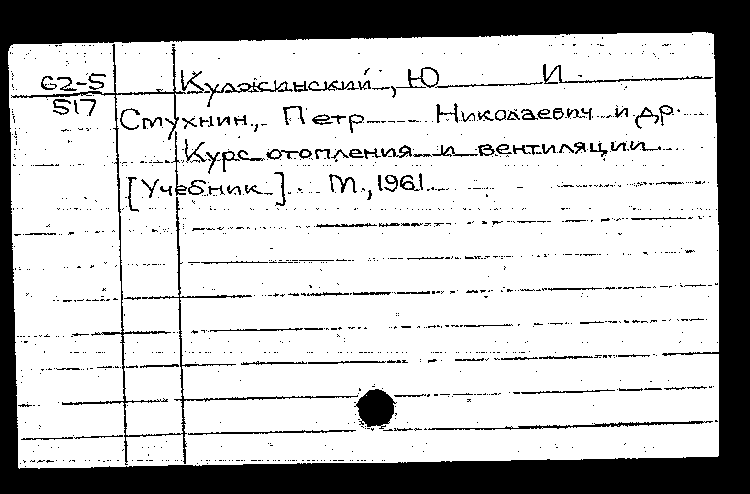 62-5
517
Куложинский, Ю И.
Стухнин, Петр Николаевич и др.
Курс отопления и вентиляции
[Учебник]. М., 1961.